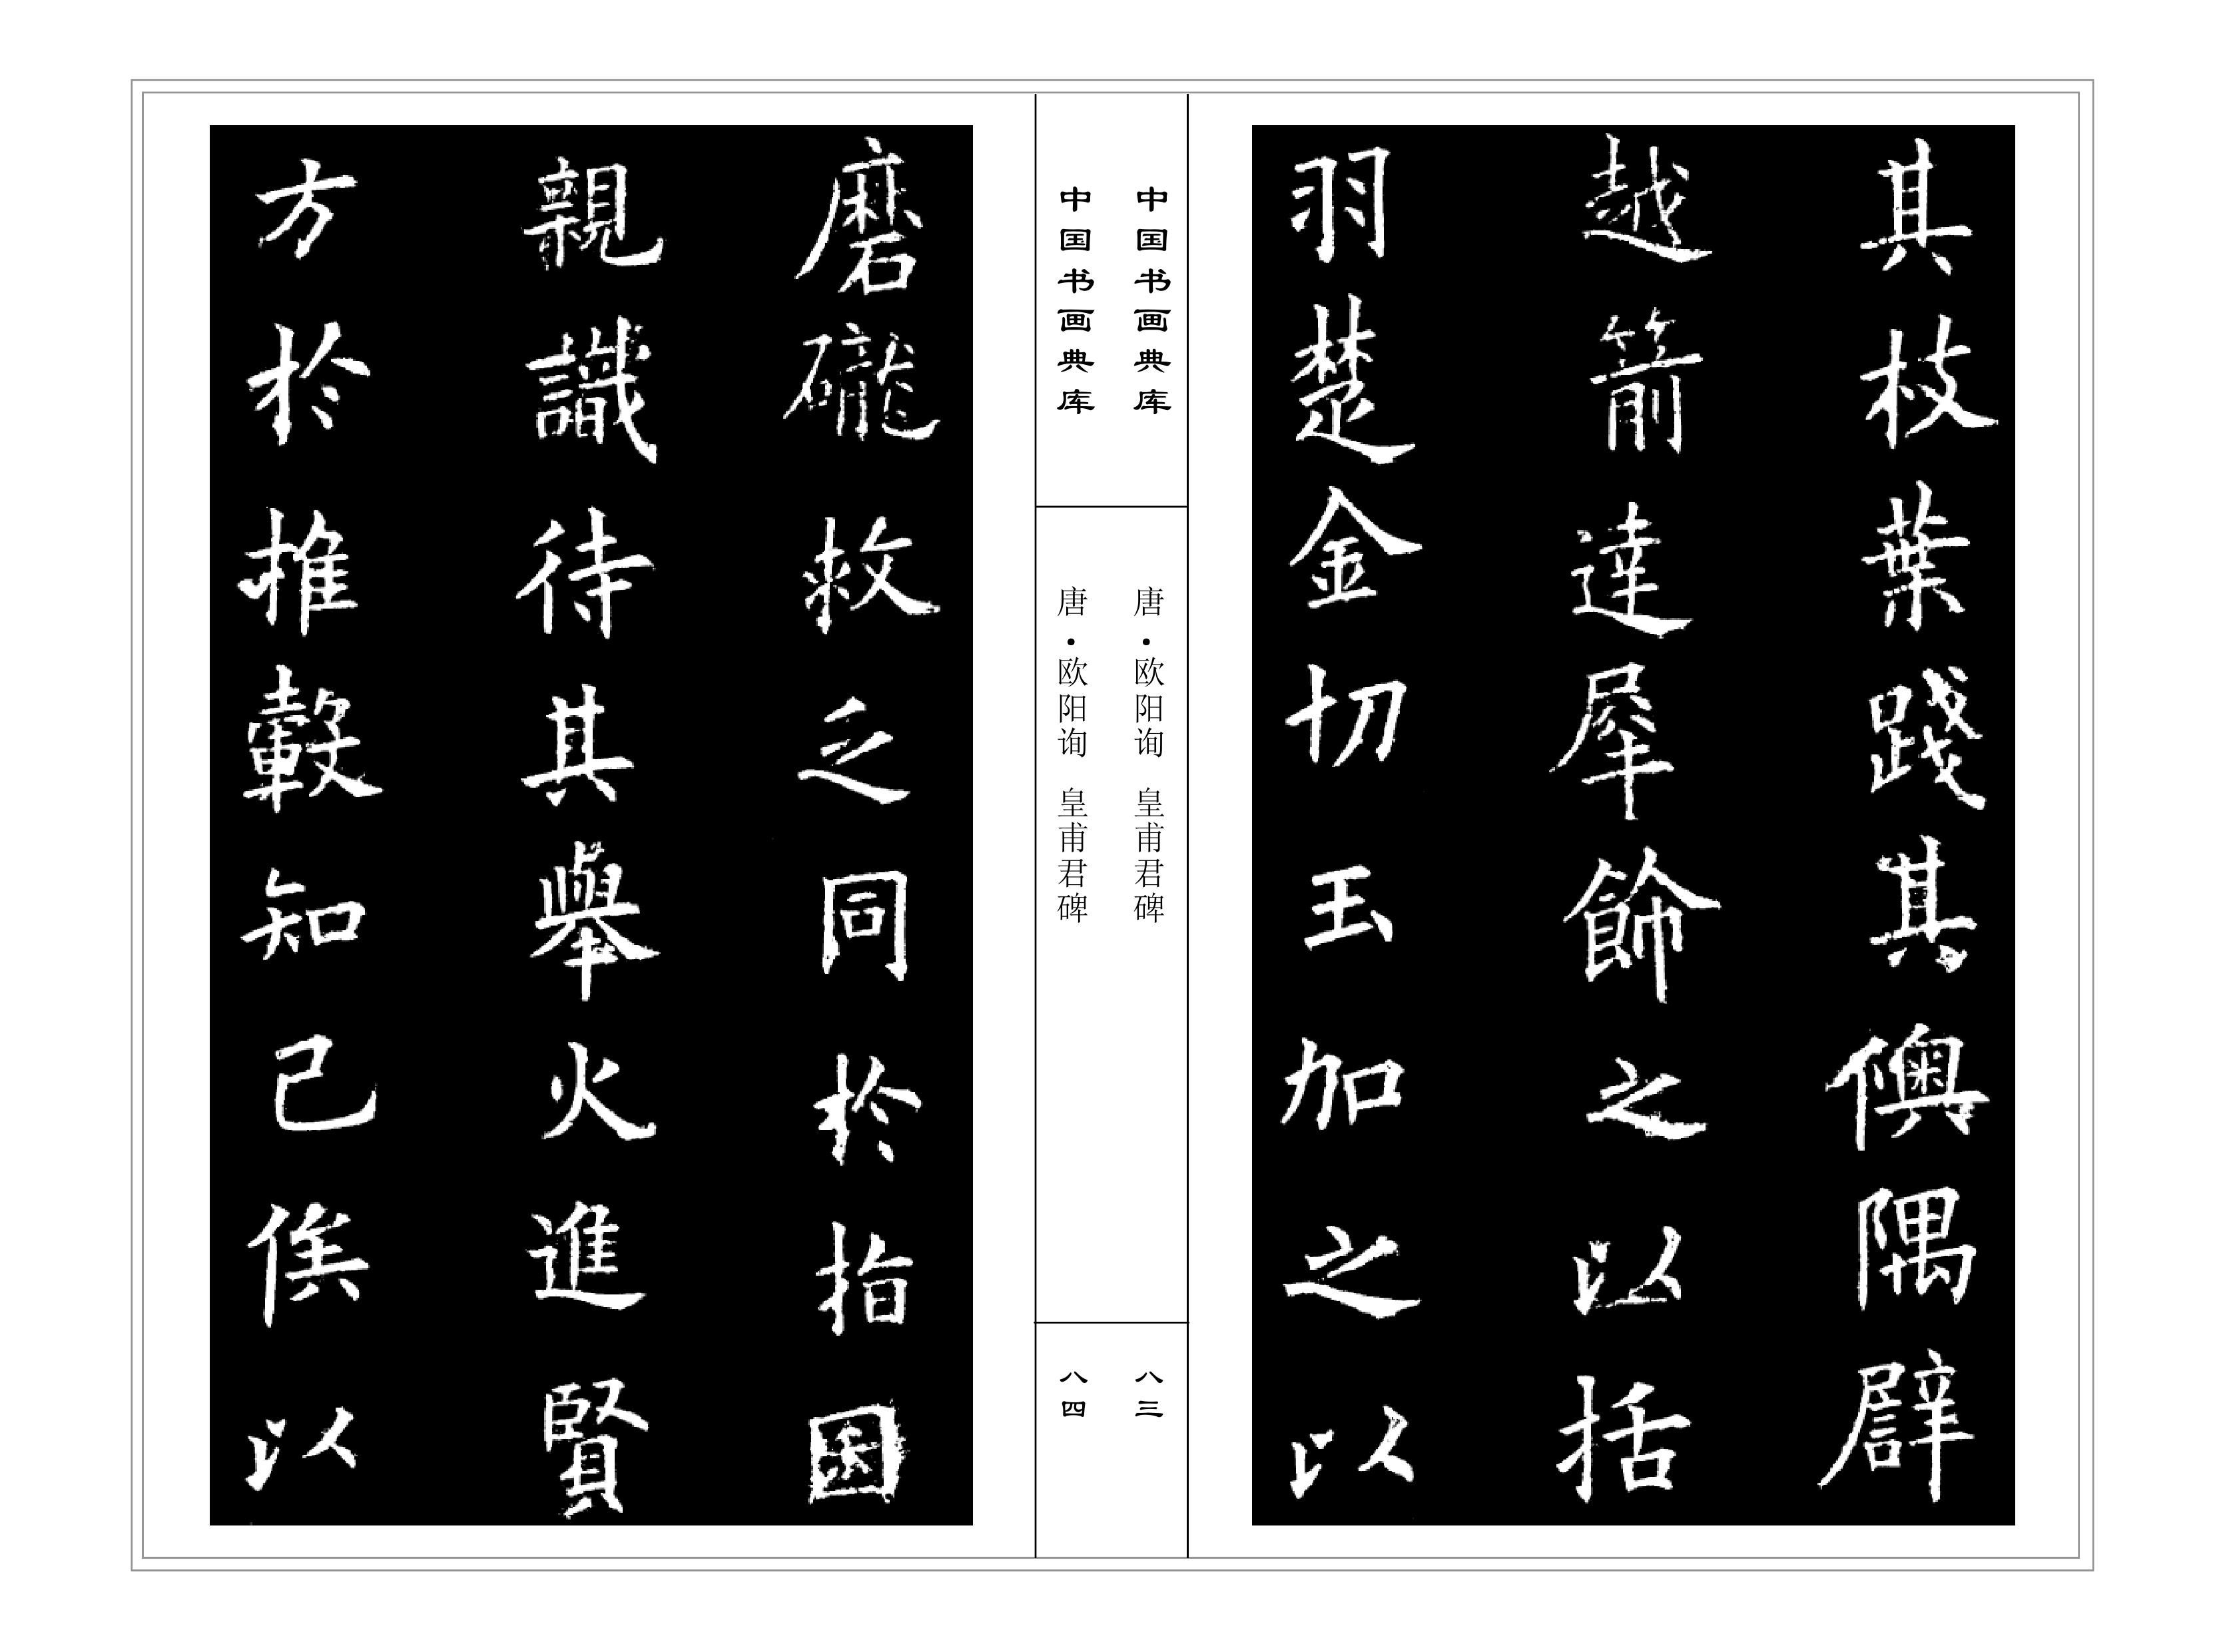 其枝葉踐其㠗隅辟
越箭達犀飾之以括
羽楚金切玉加之以
中国书画典库
唐·欧阳询 皇甫君碑
八三
中国书画典库
唐·欧阳询 皇甫君碑
八四
磨礲救乏同於指囷
親識待其舉火進賢
方於推轂知己俟以